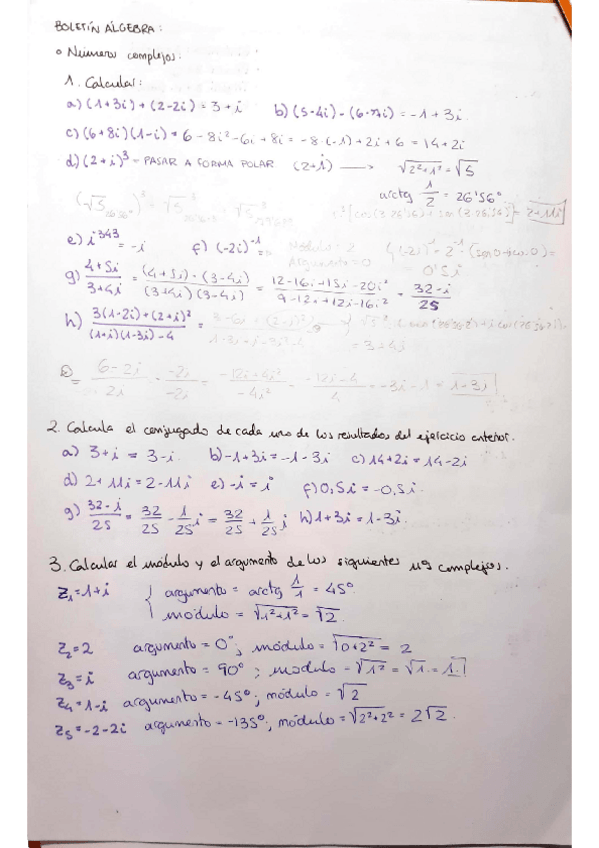 BOLETÍN ÁLGEBRA:
o Números complejos:
1. Calcular:
a) (1+3i) + (2-2i) = 3+i b) (5-4i) - (6-7i) = -1+3i
c) (6+8i)(1-i) = 6-8i²-6i+8i = -8·(-1)+2i+6 = 14+2i
d) (2+i)³ = PASAR A FORMA POLAR (2+i) → √2²+1² = √5
arctg 1/2 = 26'56°
= 2+11i
e) i³⁴³ = -i f) (-2i)⁻¹ = Módulo = 2
Argumento = 0 0'5i
g) 4+5i/3+4i = (4+5i)·(3-4i)/(3+4i)(3-4i) = 12-16i+15i-20i²/9-12i+12i-16i² = 32-i/25
h) 3(1-2i)+(2+i)²/(1+i)(1-3i)-4 =
= 3+4i
= 6-2i/2i · -2i/-2i = -12i+4i²/-4i² = -12i-4/4 = -3i-1 = 1-3i
2. Calcula el conjugado de cada uno de los resultados del ejercicio anterior.
a) 3+i = 3-i b) -1+3i = -1-3i c) 14+2i = 14-2i
d) 2+11i = 2-11i e) -i = i f) 0,5i = -0,5i
g) 32-i/25 = 32/25 - 1/25 i = 32/25 + 1/25 i h) 1+3i = 1-3i
3. Calcular el módulo y el argumento de los siguientes nº complejos.
Z₁ = 1+i { argumento = arctg 1/1 = 45°
módulo = √1²+1² = √2
Z₂ = 2 argumento = 0°; módulo = √0+2² = 2
Z₃ = i argumento = 90°; módulo = √1² = √1 = 1
Z₄ = 1-i argumento = -45°; módulo = √2
Z₅ = -2-2i argumento = -135°; módulo = √2²+2² = 2√2.